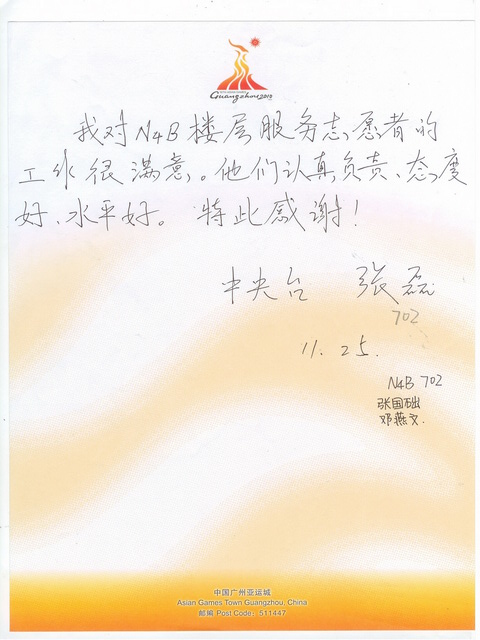 Guangzhou 2010
我对N4B楼层服务志愿者的
工作很满意。他们认真负责、态度
好、水平好。特此感谢!
中央台 张磊
702
11.25.
N4B 702
张国础
邓燕文.
中国广州亚运城
Asian Games Town Guangzhou, China
邮编 Post Code: 511447